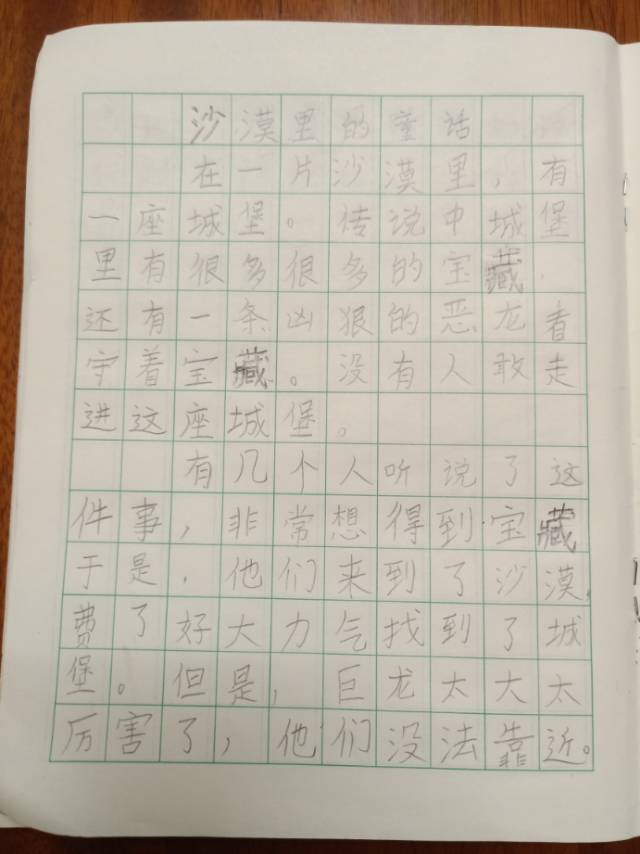 沙漠里的童话
在一片沙漠里，有
一座城堡。传说中城堡
里有很多很多的宝藏，
还有一条凶狠的恶龙看
守着宝藏。没有人敢走
进这座城堡。
有几个人听说了这
件事，非常想得到宝藏
于是，他们来到了沙漠，
费了好大力气找到了城
堡。但是，巨龙太大太
厉害了，他们没法靠近。